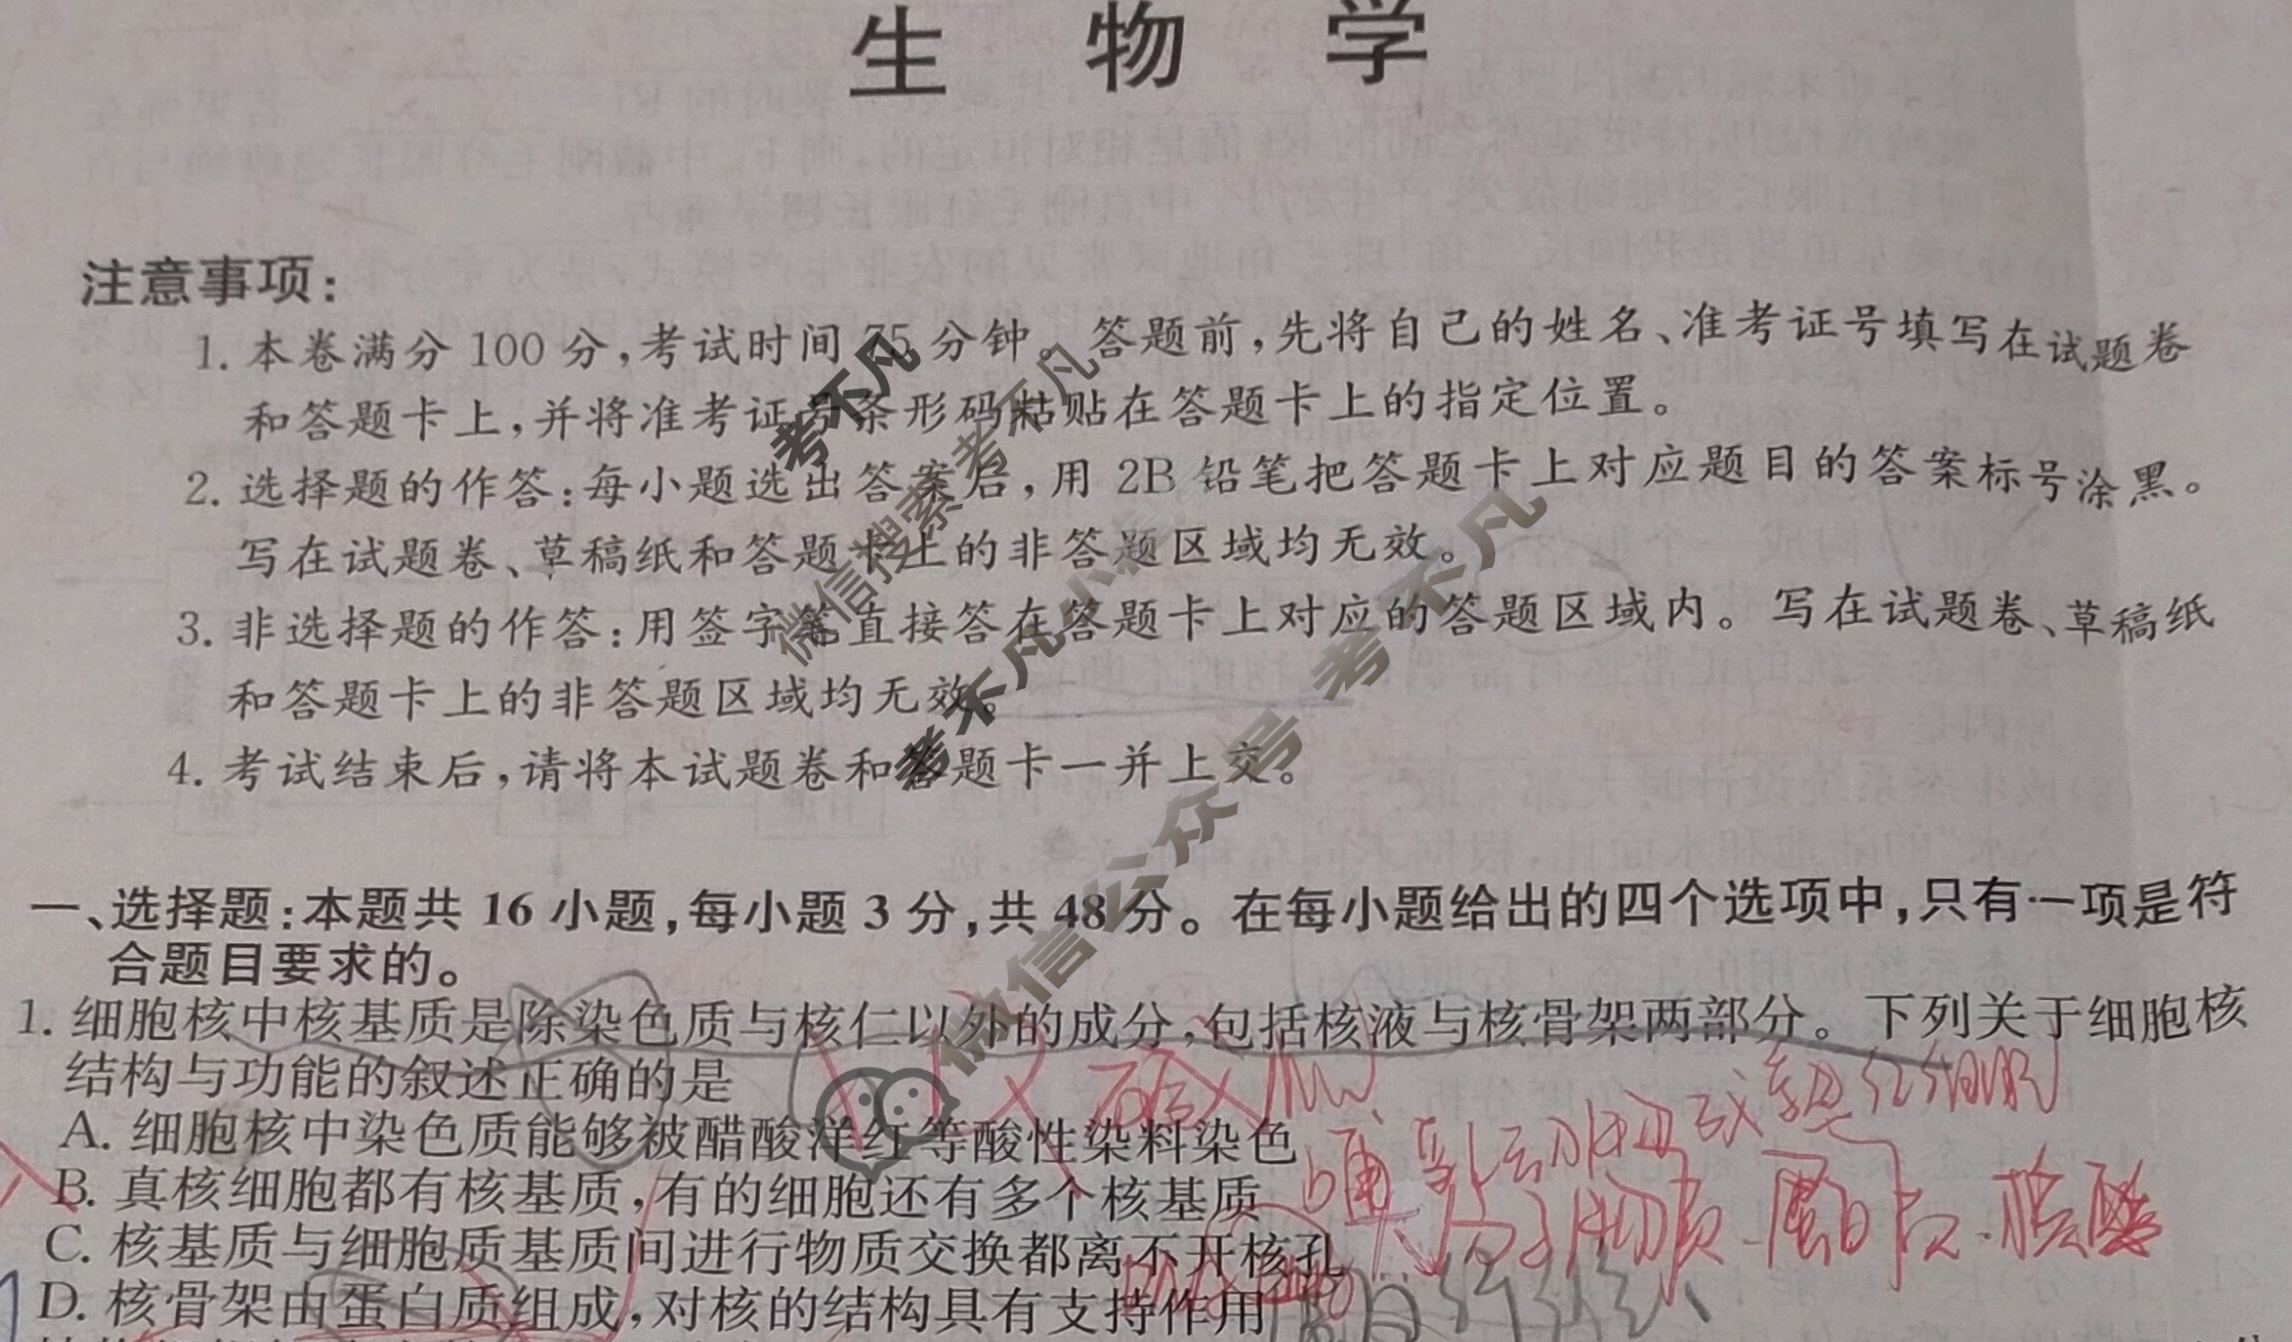 生物学
注意事项：
1. 本卷满分 100 分，考试时间 75 分钟。答题前，先将自己的姓名、准考证号填写在试题卷
和答题卡上，并将准考证号条形码粘贴在答题卡上的指定位置。
2. 选择题的作答：每小题选出答案后，用 2B 铅笔把答题卡上对应题目的答案标号涂黑。
写在试题卷、草稿纸和答题卡上的非答题区域均无效。
3. 非选择题的作答：用签字笔直接答在答题卡上对应的答题区域内。写在试题卷、草稿纸
和答题卡上的非答题区域均无效。
4. 考试结束后，请将本试题卷和答题卡一并上交。
考不凡
微信搜索考不凡
考不凡小程序
微信公众号 考不凡
一、选择题：本题共 16 小题，每小题 3 分，共 48 分。在每小题给出的四个选项中，只有一项是符
合题目要求的。
1. 细胞核中核基质是除染色质与核仁以外的成分，包括核液与核骨架两部分。下列关于细胞核
结构与功能的叙述正确的是
A. 细胞核中染色质能够被醋酸洋红等酸性染料染色
B. 真核细胞都有核基质，有的细胞还有多个核基质
C. 核基质与细胞质基质间进行物质交换都离不开核孔
D. 核骨架由蛋白质组成，对核的结构具有支持作用
哺乳动物成熟红细胞
大分子物质 蛋白质、核酸